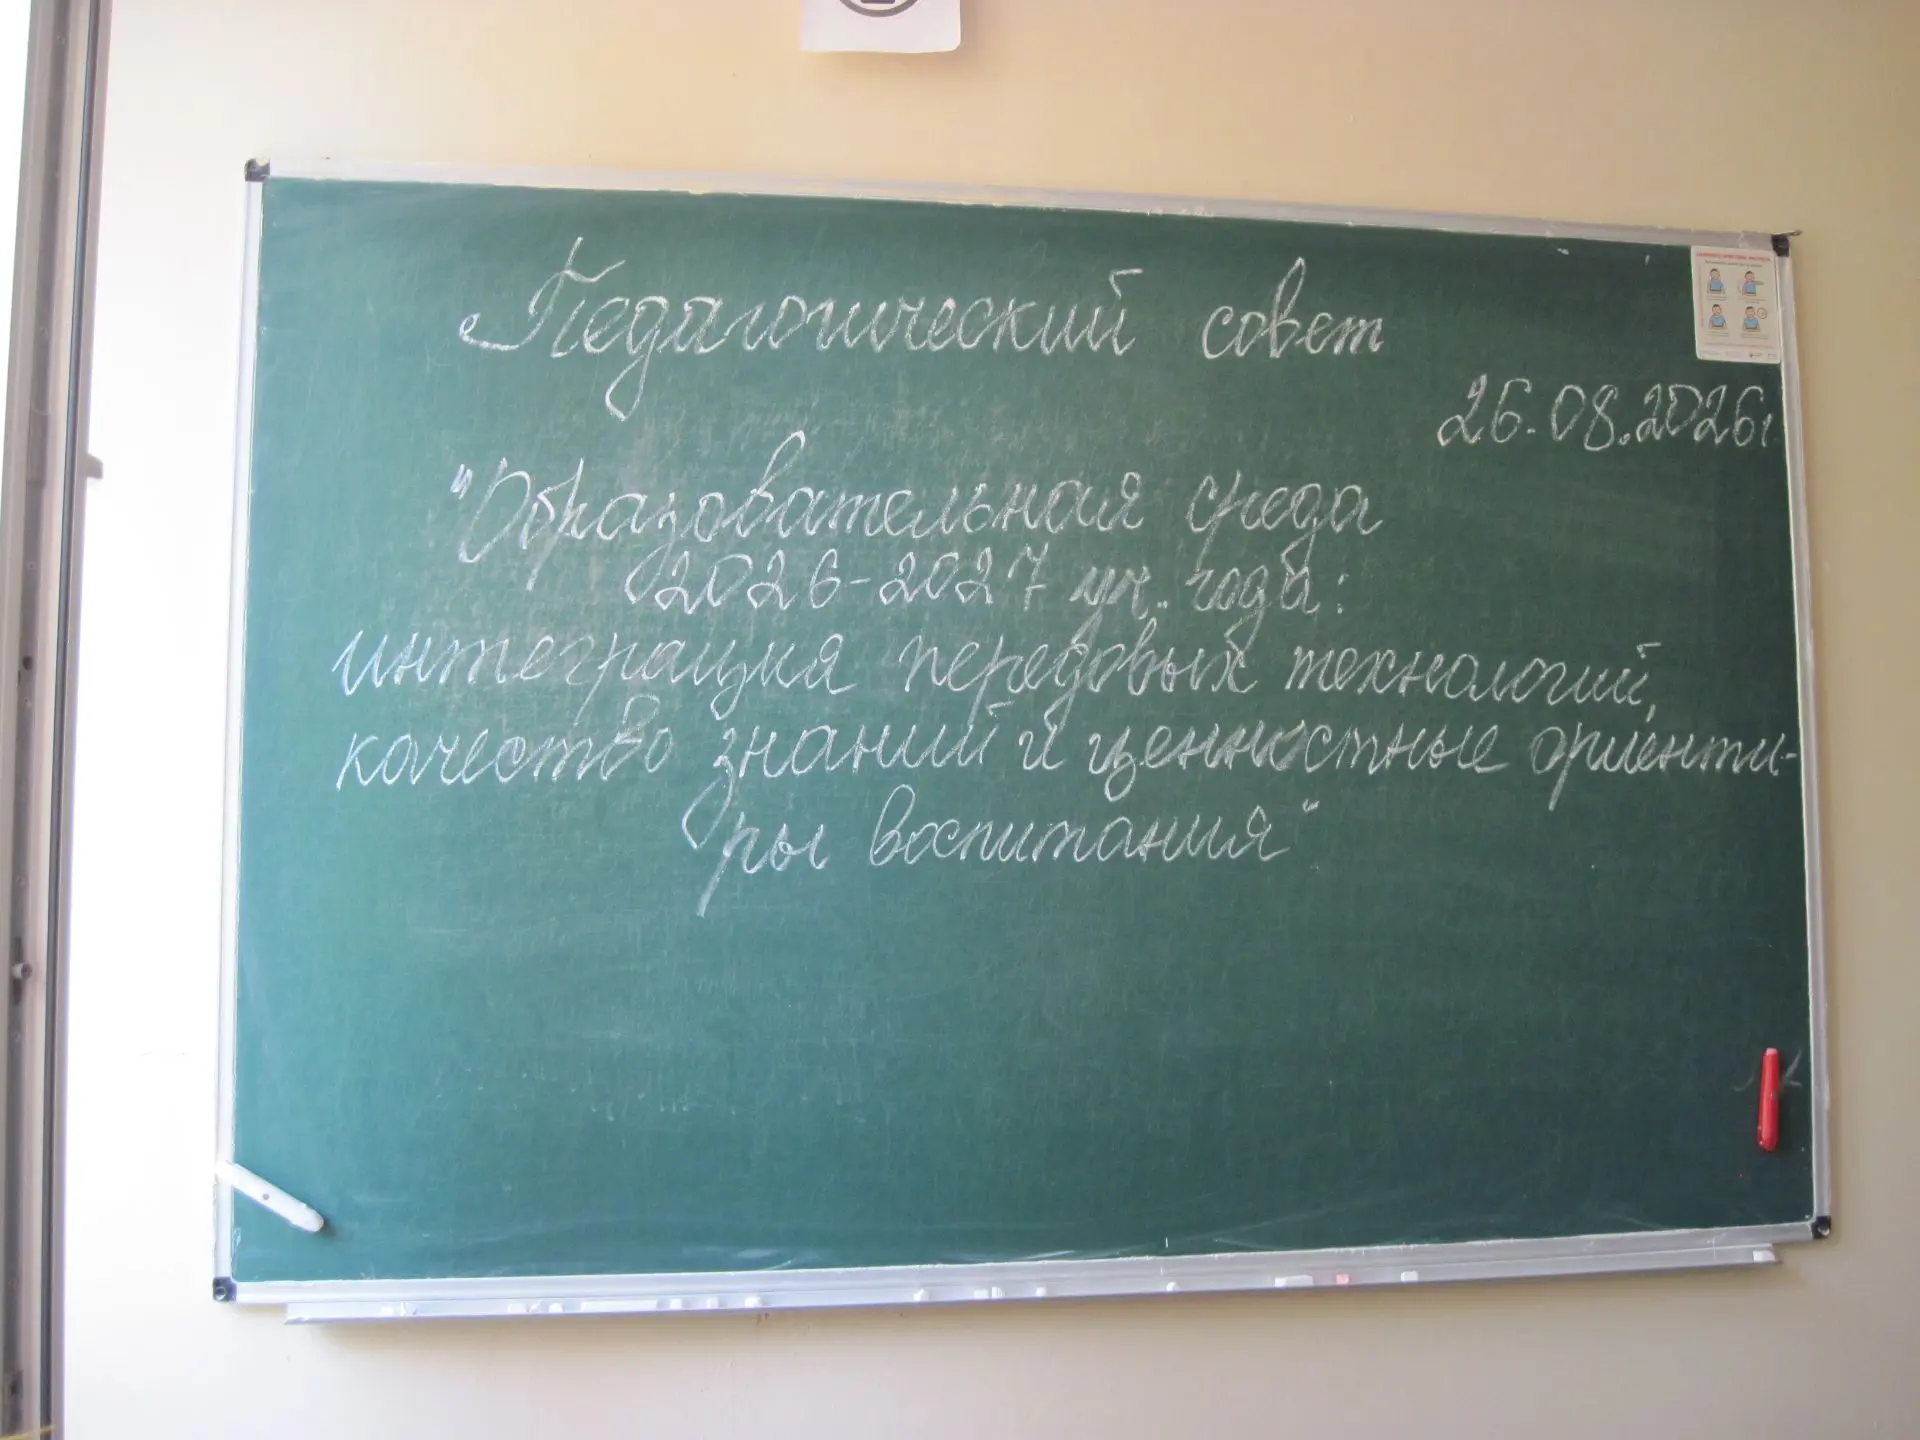 Педагогический совет
26.08.2026г.
"Образовательная среда
2026-2027 уч. года:
интеграция передовых технологий,
качество знаний и ценностные ориенти-
ры воспитания"